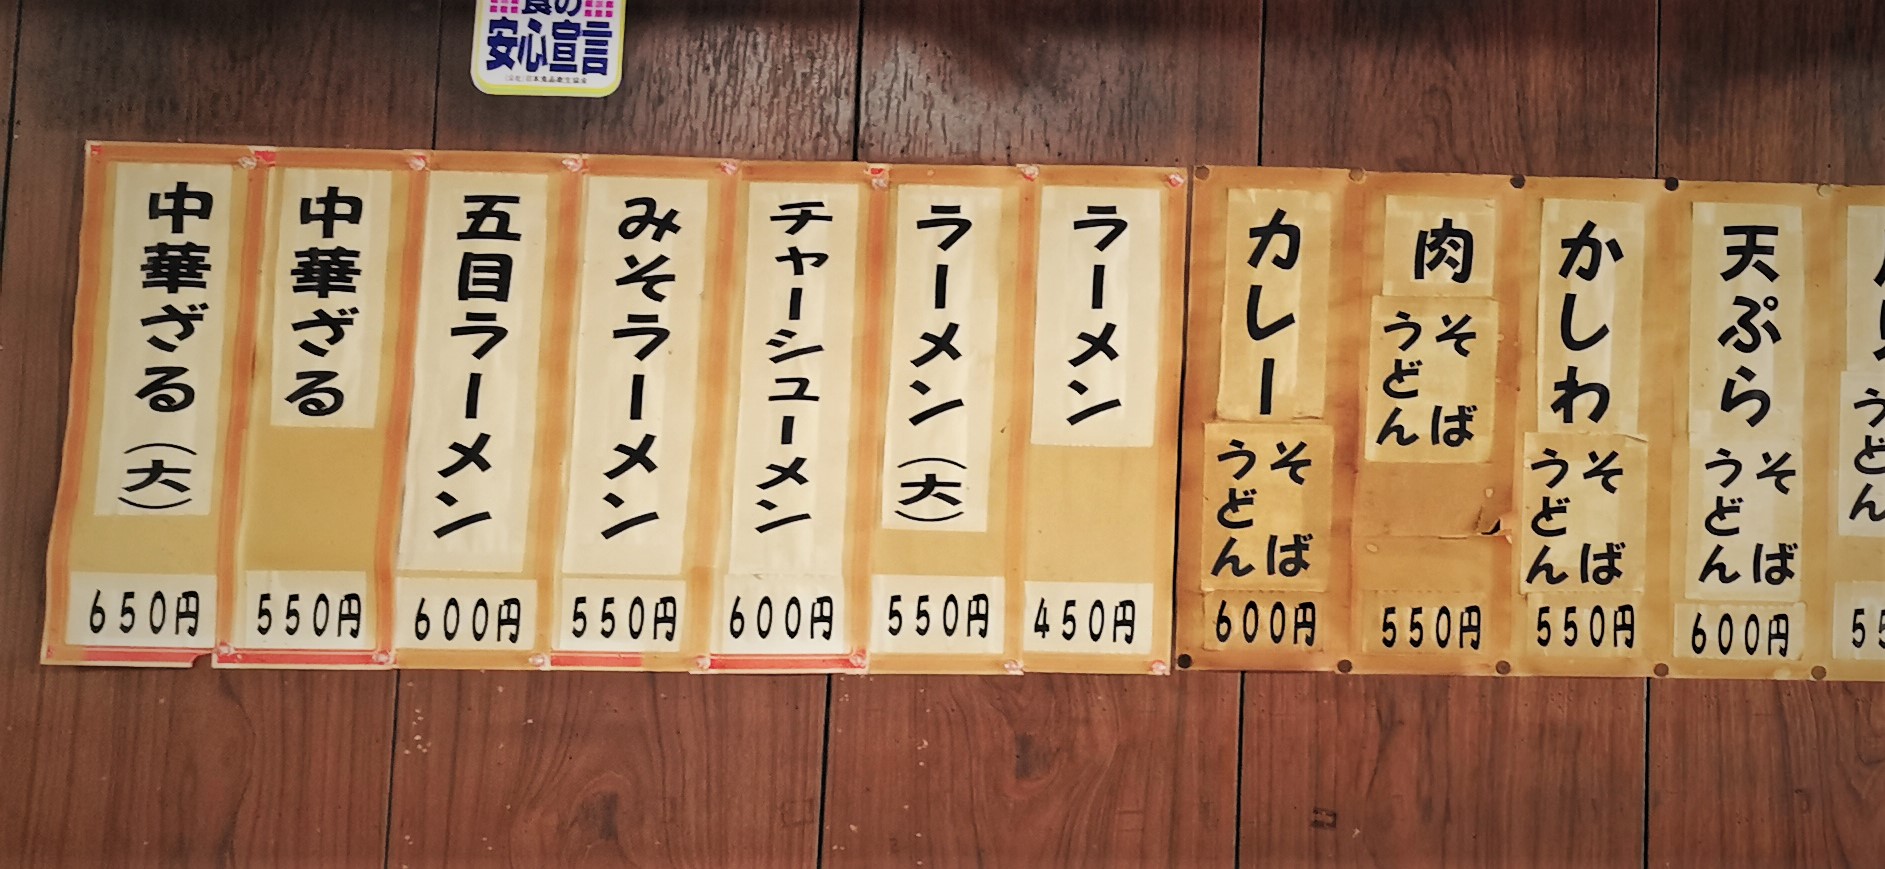 食の
安心宣言
中華ざる(大)
650円
中華ざる
550円
五目ラーメン
600円
みそラーメン
550円
チャーシューメン
600円
ラーメン(大)
550円
ラーメン
450円
カレー
そば
うどん
600円
肉
そば
うどん
550円
かしわ
そば
うどん
550円
天ぷら
そば
うどん
600円
うどん